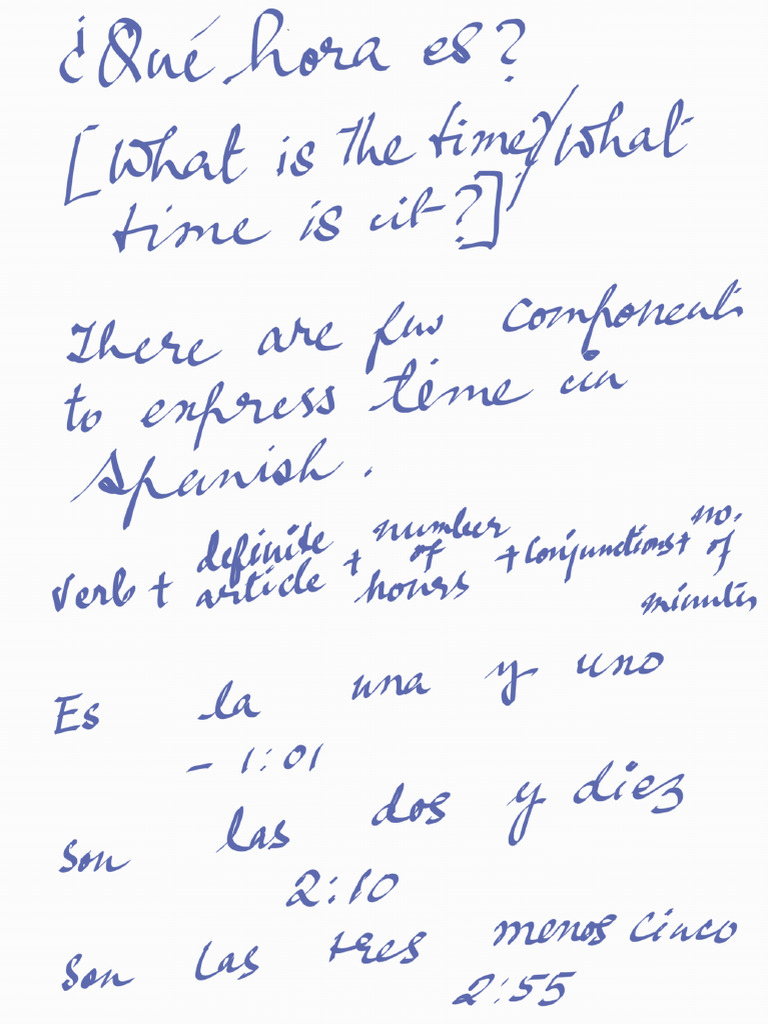 ¿Qué hora es?
[What is the time?/What
time is it?]
There are few components
to express time in
Spanish.
Verb + definite article + number of hours + conjunctions + no. of minutes
Es la una y uno
- 1:01
Son las dos y diez
2:10
Son las tres menos cinco
2:55